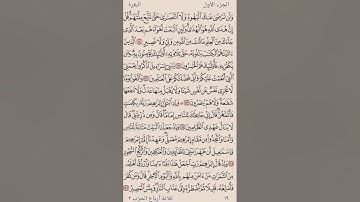 الجزء الأول البقرة
وَلَن تَرْضَىٰ عَنكَ الْيَهُودُ وَلَا النَّصَارَىٰ حَتَّىٰ تَتَّبِعَ مِلَّتَهُمْ قُلْ
إِنَّ هُدَى اللَّهِ هُوَ الْهُدَىٰ وَلَئِنِ اتَّبَعْتَ أَهْوَاءَهُم بَعْدَ الَّذِي
جَاءَكَ مِنَ الْعِلْمِ مَا لَكَ مِنَ اللَّهِ مِن وَلِيٍّ وَلَا نَصِيرٍ الَّذِينَ
آتَيْنَاهُمُ الْكِتَابَ يَتْلُونَهُ حَقَّ تِلَاوَتِهِ أُولَٰئِكَ يُؤْمِنُونَ بِهِ وَمَن
يَكْفُرْ بِهِ فَأُولَٰئِكَ هُمُ الْخَاسِرُونَ يَا بَنِي إِسْرَائِيلَ اذْكُرُوا نِعْمَتِيَ
الَّتِي أَنْعَمْتُ عَلَيْكُمْ وَأَنِّي فَضَّلْتُكُمْ عَلَى الْعَالَمِينَ وَاتَّقُوا
يَوْمًا لَّا تَجْزِي نَفْسٌ عَن نَّفْسٍ شَيْئًا وَلَا يُقْبَلُ مِنْهَا عَدْلٌ وَلَا تَنفَعُهَا
شَفَاعَةٌ وَلَا هُمْ يُنصَرُونَ وَإِذِ ابْتَلَىٰ إِبْرَاهِيمَ رَبُّهُ بِكَلِمَاتٍ
فَأَتَمَّهُنَّ قَالَ إِنِّي جَاعِلُكَ لِلنَّاسِ إِمَامًا قَالَ وَمِن ذُرِّيَّتِي قَالَ
لَا يَنَالُ عَهْدِي الظَّالِمِينَ وَإِذْ جَعَلْنَا الْبَيْتَ مَثَابَةً لِّلنَّاسِ
وَأَمْنًا وَاتَّخِذُوا مِن مَّقَامِ إِبْرَاهِيمَ مُصَلًّى وَعَهِدْنَا إِلَىٰ إِبْرَاهِيمَ
وَإِسْمَاعِيلَ أَن طَهِّرَا بَيْتِيَ لِلطَّائِفِينَ وَالْعَاكِفِينَ وَالرُّكَّعِ السُّجُودِ
وَإِذْ قَالَ إِبْرَاهِيمُ رَبِّ اجْعَلْ هَٰذَا بَلَدًا آمِنًا وَارْزُقْ أَهْلَهُ
مِنَ الثَّمَرَاتِ مَنْ آمَنَ مِنْهُم بِاللَّهِ وَالْيَوْمِ الْآخِرِ قَالَ وَمَن كَفَرَ
فَأُمَتِّعُهُ قَلِيلًا ثُمَّ أَضْطَرُّهُ إِلَىٰ عَذَابِ النَّارِ وَبِئْسَ الْمَصِيرُ
١٩ ثلاثة أرباع الحزب ٢